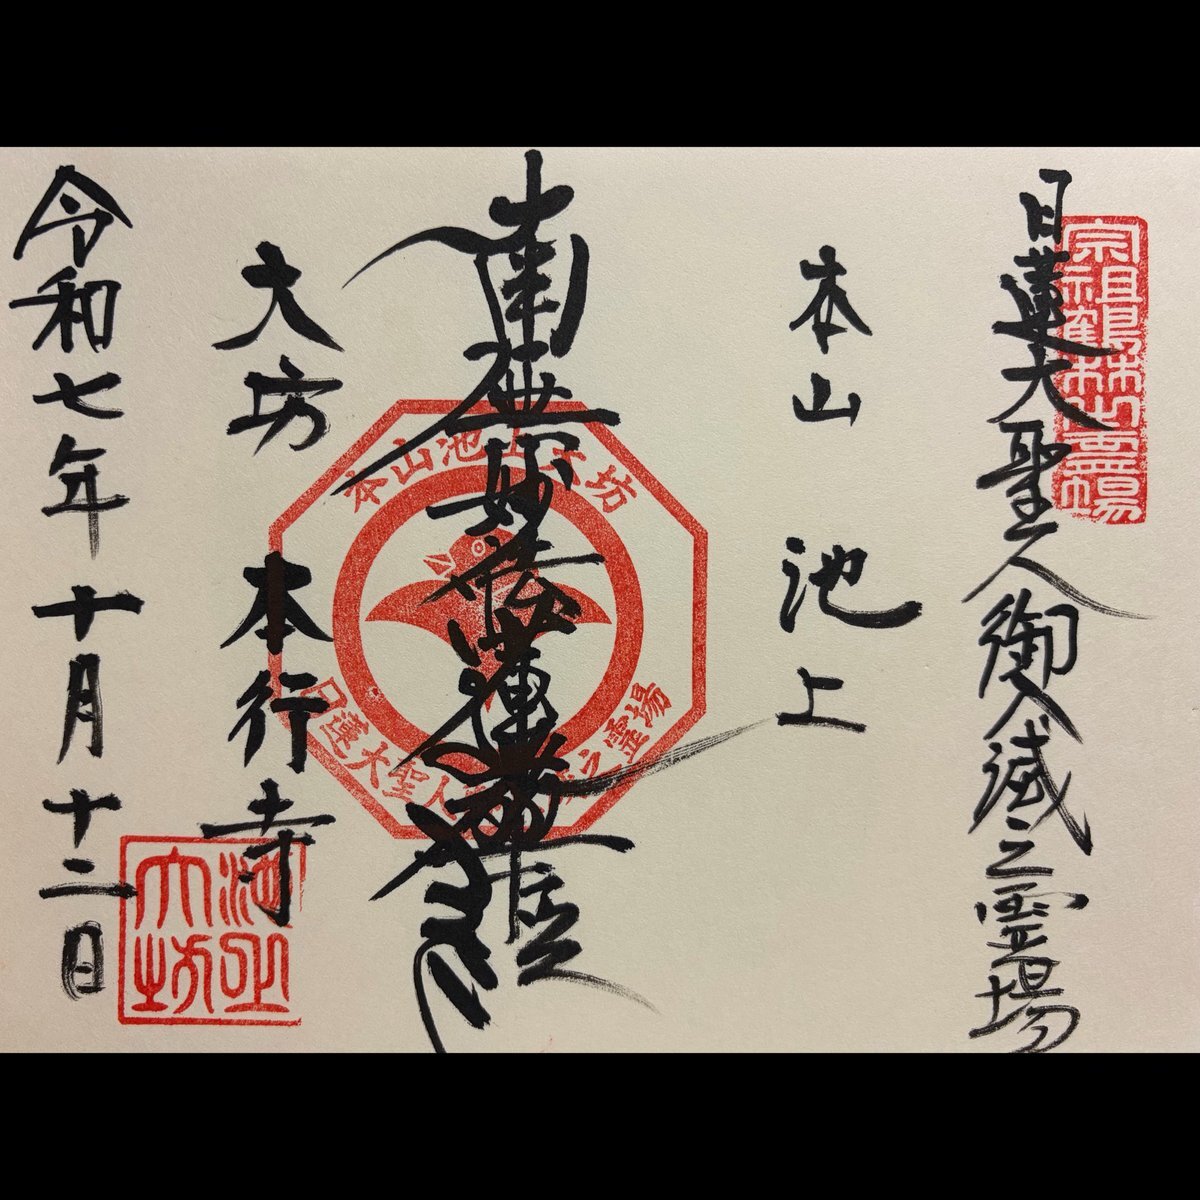 日蓮大聖人御入滅之霊場
宗祖鶴林之霊場
本山 池上
南無妙法蓮華経
本山池上大坊
日蓮大聖人
之霊場
大坊 本行寺
池上
大坊
令和七年十月十二日